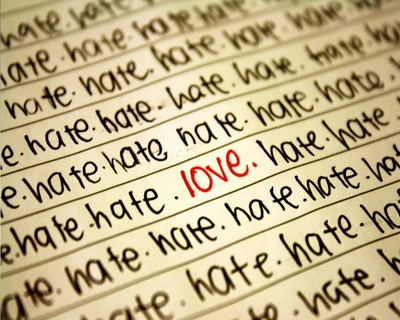 hate. hate. hate
ate. hate. hate hate hate
hate hate. hate hate. hate hate
e. hate. hate. hate hate. hate. hate
e. hate hate hate. hate hate.
e. hate hate. love. hate hate.
ate. hate. hate. hate. hate. ha
hate. hate. hate. ha
hate. h